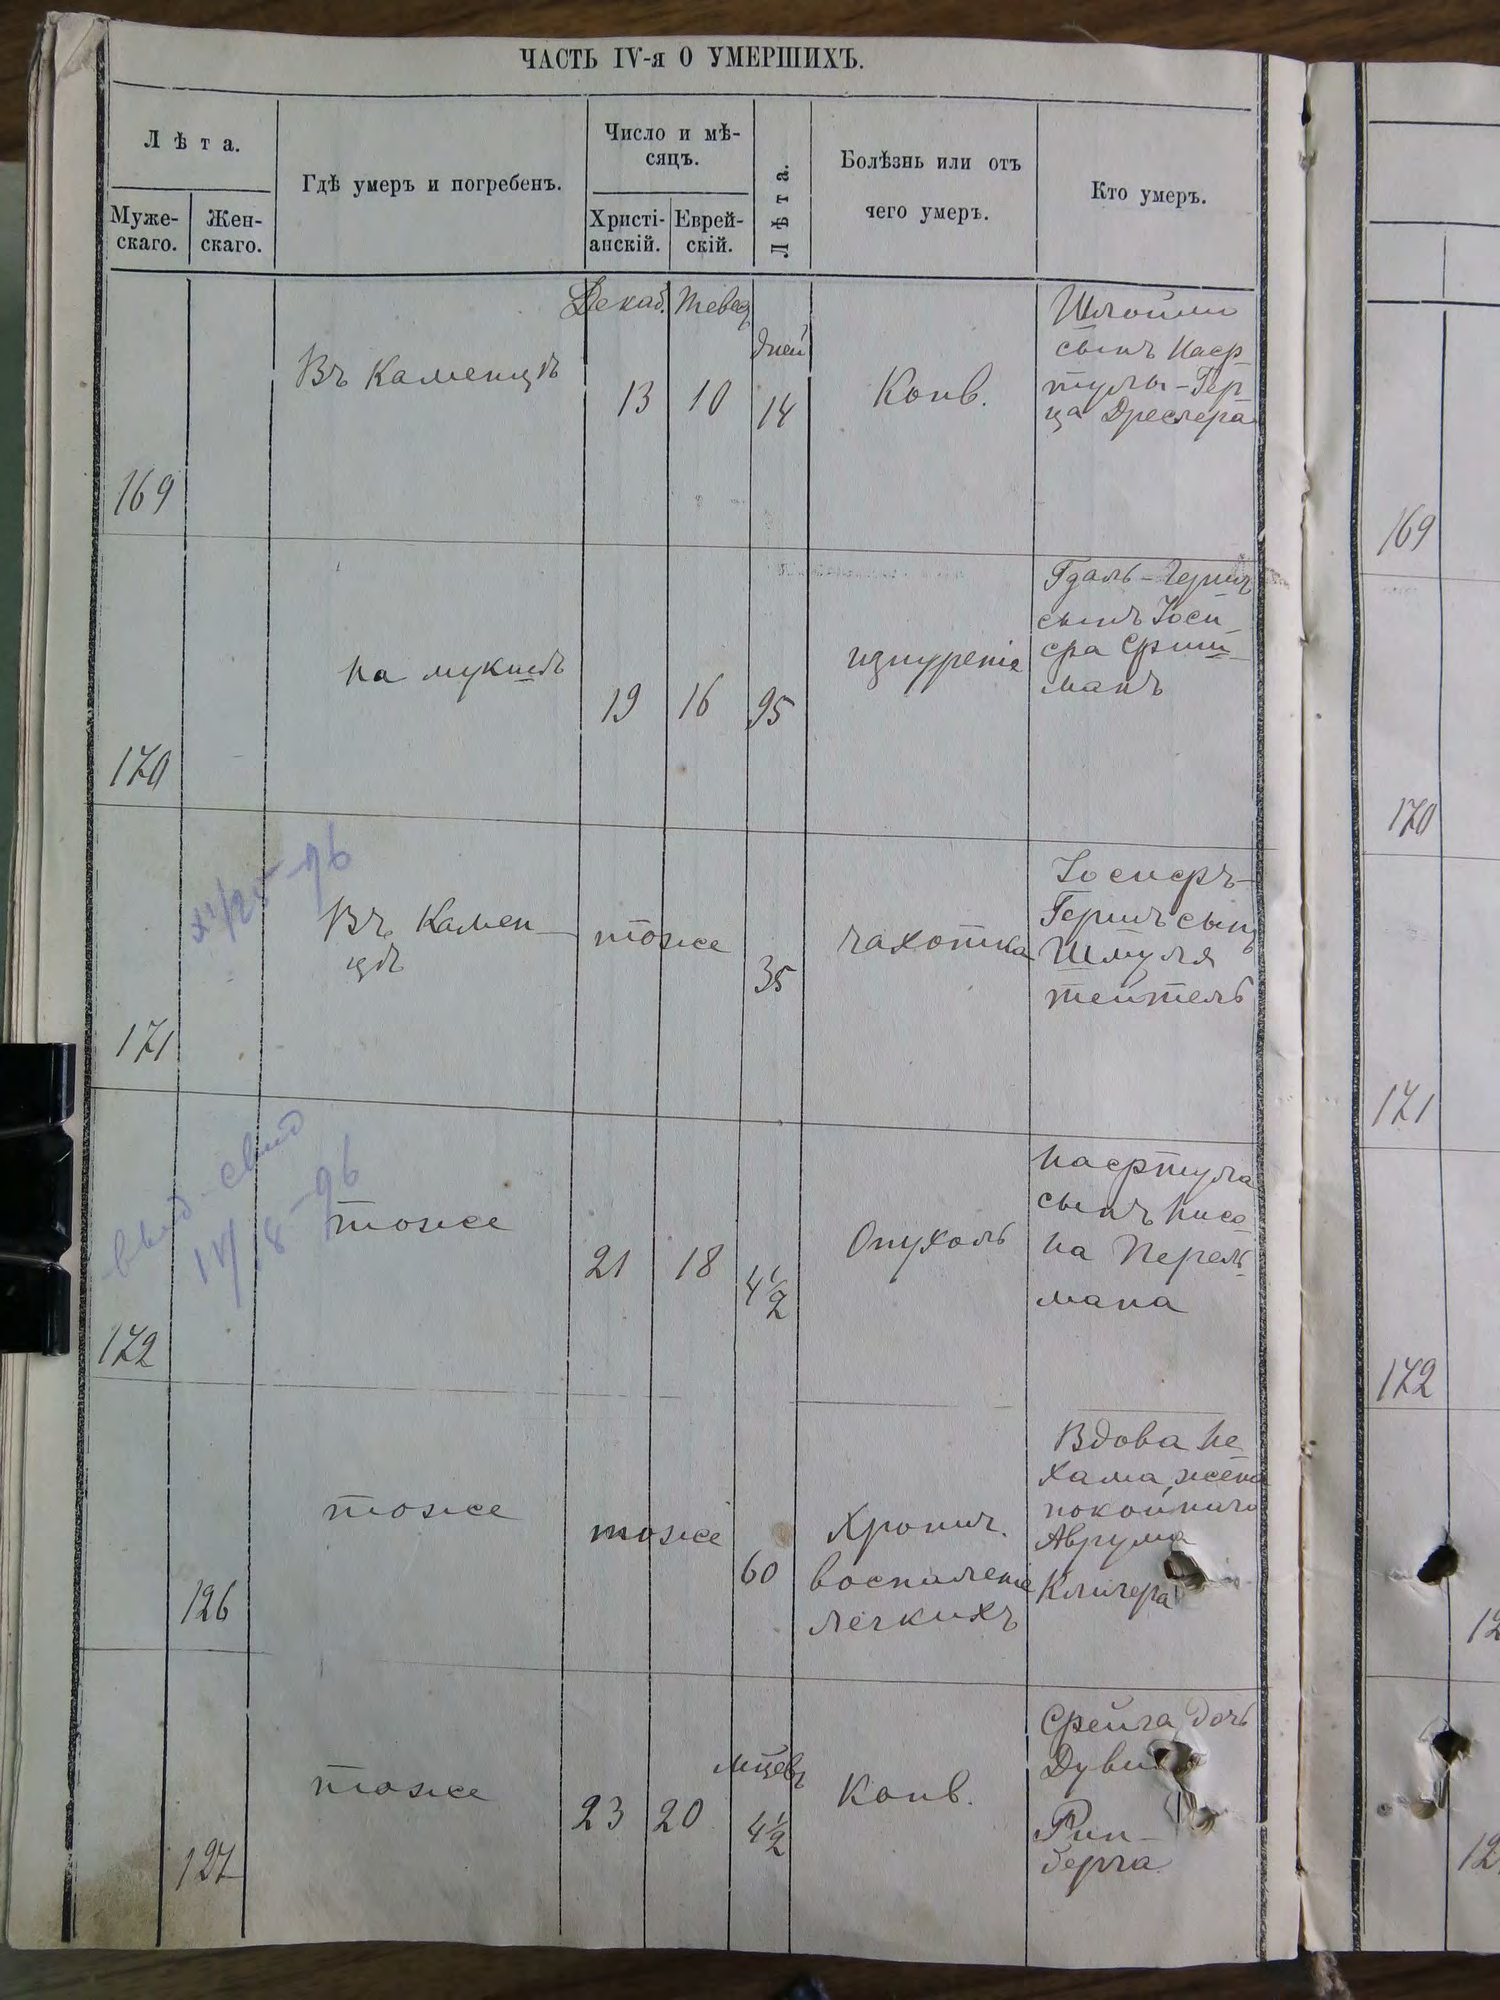 ЧАСТЬ IV-я О УМЕРШИХЪ.
Лѣта.
Муже-
скаго.
Жен-
скаго.
Гдѣ умеръ и погребенъ.
Число и мѣ-
сяцъ.
Христі-
анскій.
Еврей-
скій.
Лѣта.
Болѣзнь или отъ
чего умеръ.
Кто умеръ.
169
Въ Каменцѣ
Декаб.
13
Тевед
10
дней
14
Конв.
Шлойми
сынъ Наф-
тулы-Гер-
ца Дреслера
169
170
19
16
95
изнуреніе
Гдаль-Герш
сынъ Іоси
фа Фриш
манъ
170
XI/25-96
171
Въ Камен-
цѣ
тоже
35
чахотка
Іосифъ-
Гершъ сынъ
Шмуля
тейтель
171
выд свид
IV/8-96
172
тоже
21
18
4 1/2
Опухоль
Нафтула
сынъ Нисо
на Перель-
мана
172
126
тоже
тоже
60
Хронич.
воспаленіе
легкихъ
Вдова Не
хама жена
покойнаго
Аврума
Клигера
12
127
тоже
23
20
мцевъ
4 1/2
Конв.
Фрейга дочь
Рин-
берга
12